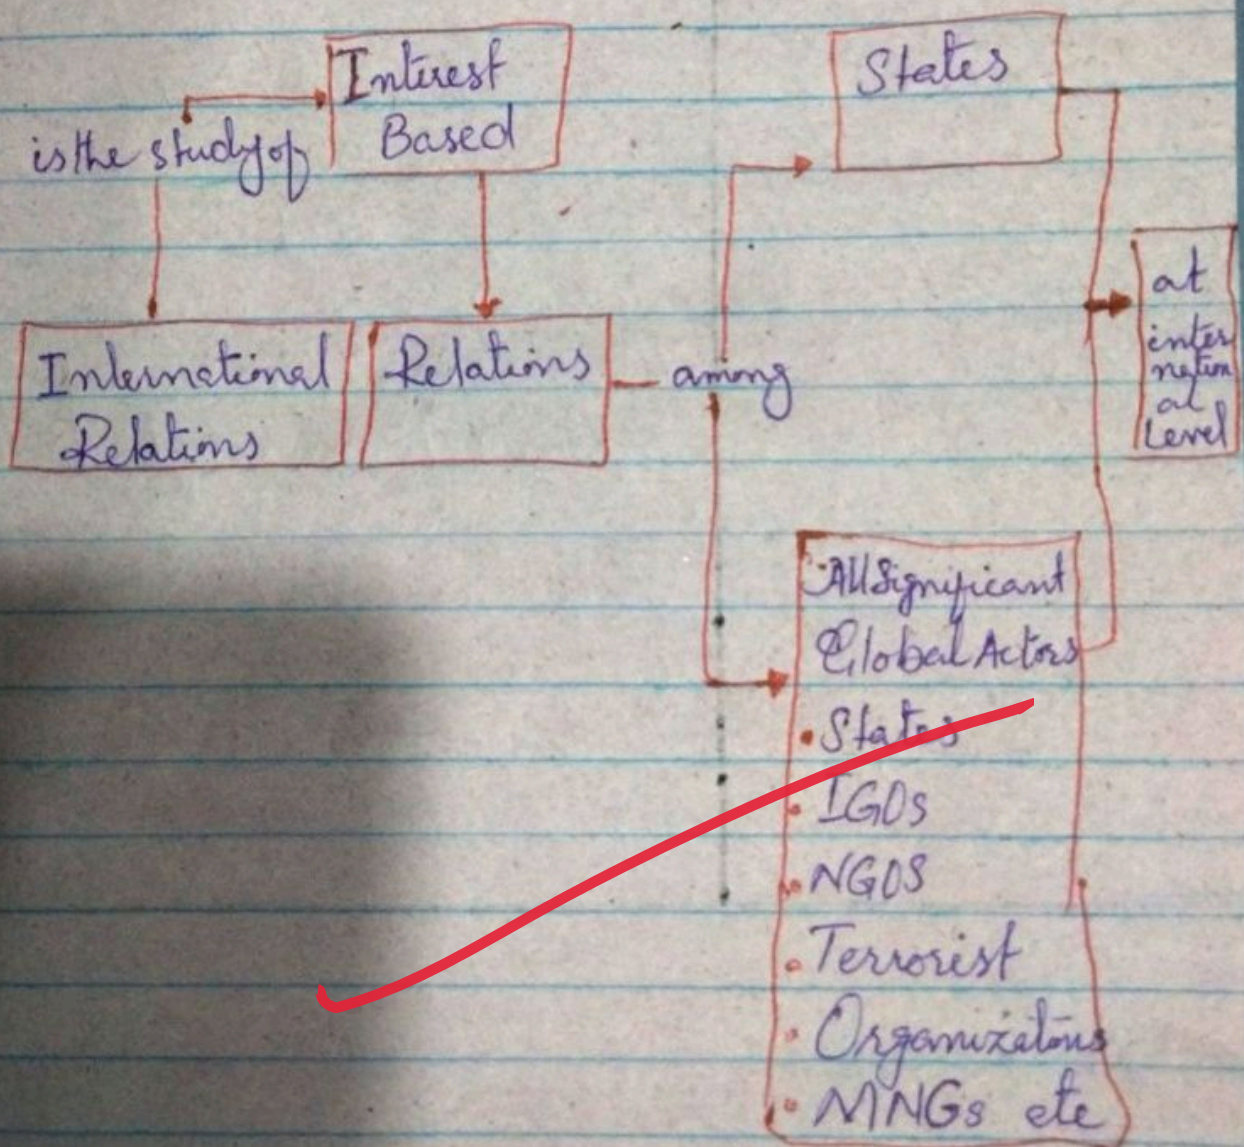 is the study of
Interest
Based
International
Relations
Relations
among
States
at
inter
nation
al
Level
All Significant
Global Actors
• States
• IGOs
• NGOS
• Terrorist
• Organizations
• MNGs etc